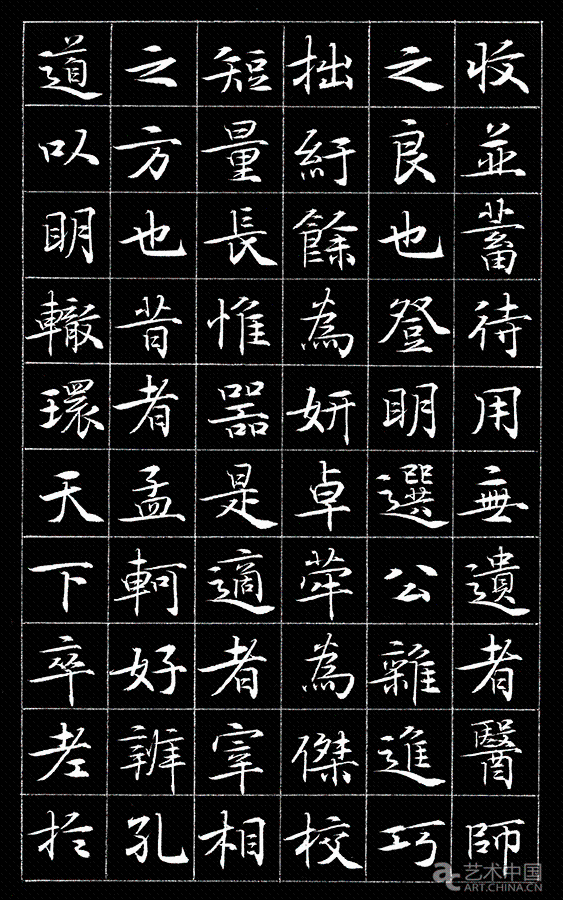 收並蓄待用無遺者醫師
之良也登明選公雜進巧
拙紆餘為妍卓犖為傑校
短量長惟器是適者宰相
之方也昔者孟軻好辨孔
道以明轍環天下卒老於
艺术中国
ART.CHINA.CN